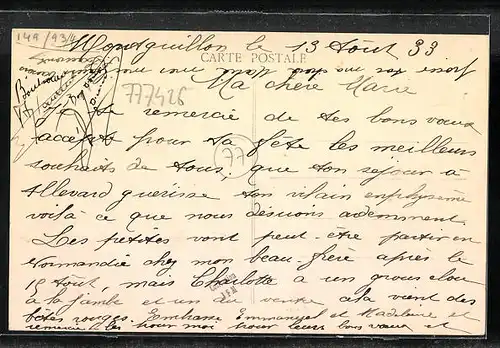 149/934
Montguillon le 13 Août 33
CARTE POSTALE
777426
Ma chère Marie
Je te remercie de tes bons vœux
accepte pour ta fête les meilleurs
souhaits de tous, que ton séjour à
Allevard guérisse ton vilain emphysème
voilà ce que nous désirons ardemment.
77
Les petites vont peut-être partir en
Normandie chez mon beau-frère après le
15 Août, mais Charlotte a un gros clou
à la jambe et un au ventre cela vient des
bêtes rouges. Embrasse Emmanuel et Madeleine et
remercie les pour moi pour leurs bons vœux et